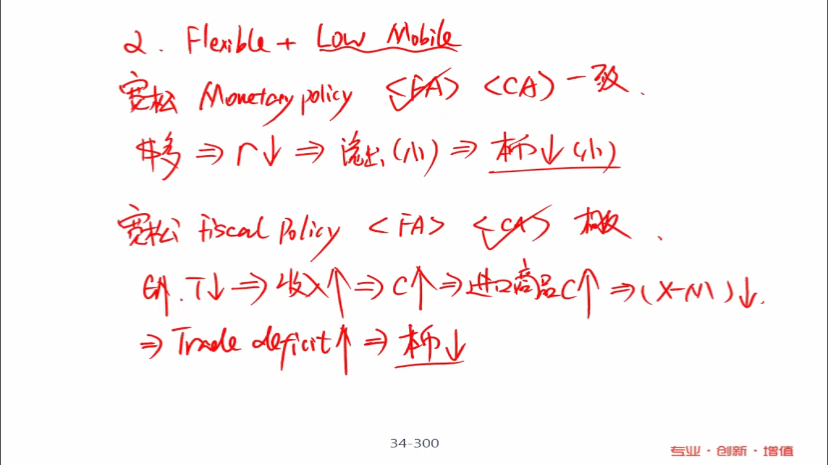 2. Flexible + Low Mobile
宽松 Monetary policy <FA> <CA> 一致.
$多 ⇒ r↓ ⇒ 流出(小) ⇒ 本币↓(小)
宽松 Fiscal Policy <FA> <CA> 相反.
G↑.T↓ ⇒ 收入↑ ⇒ C↑ ⇒ 进口商品C↑ ⇒ (X-M)↓.
⇒ Trade deficit↑ ⇒ 本币↓
34-300
专业·创新·增值